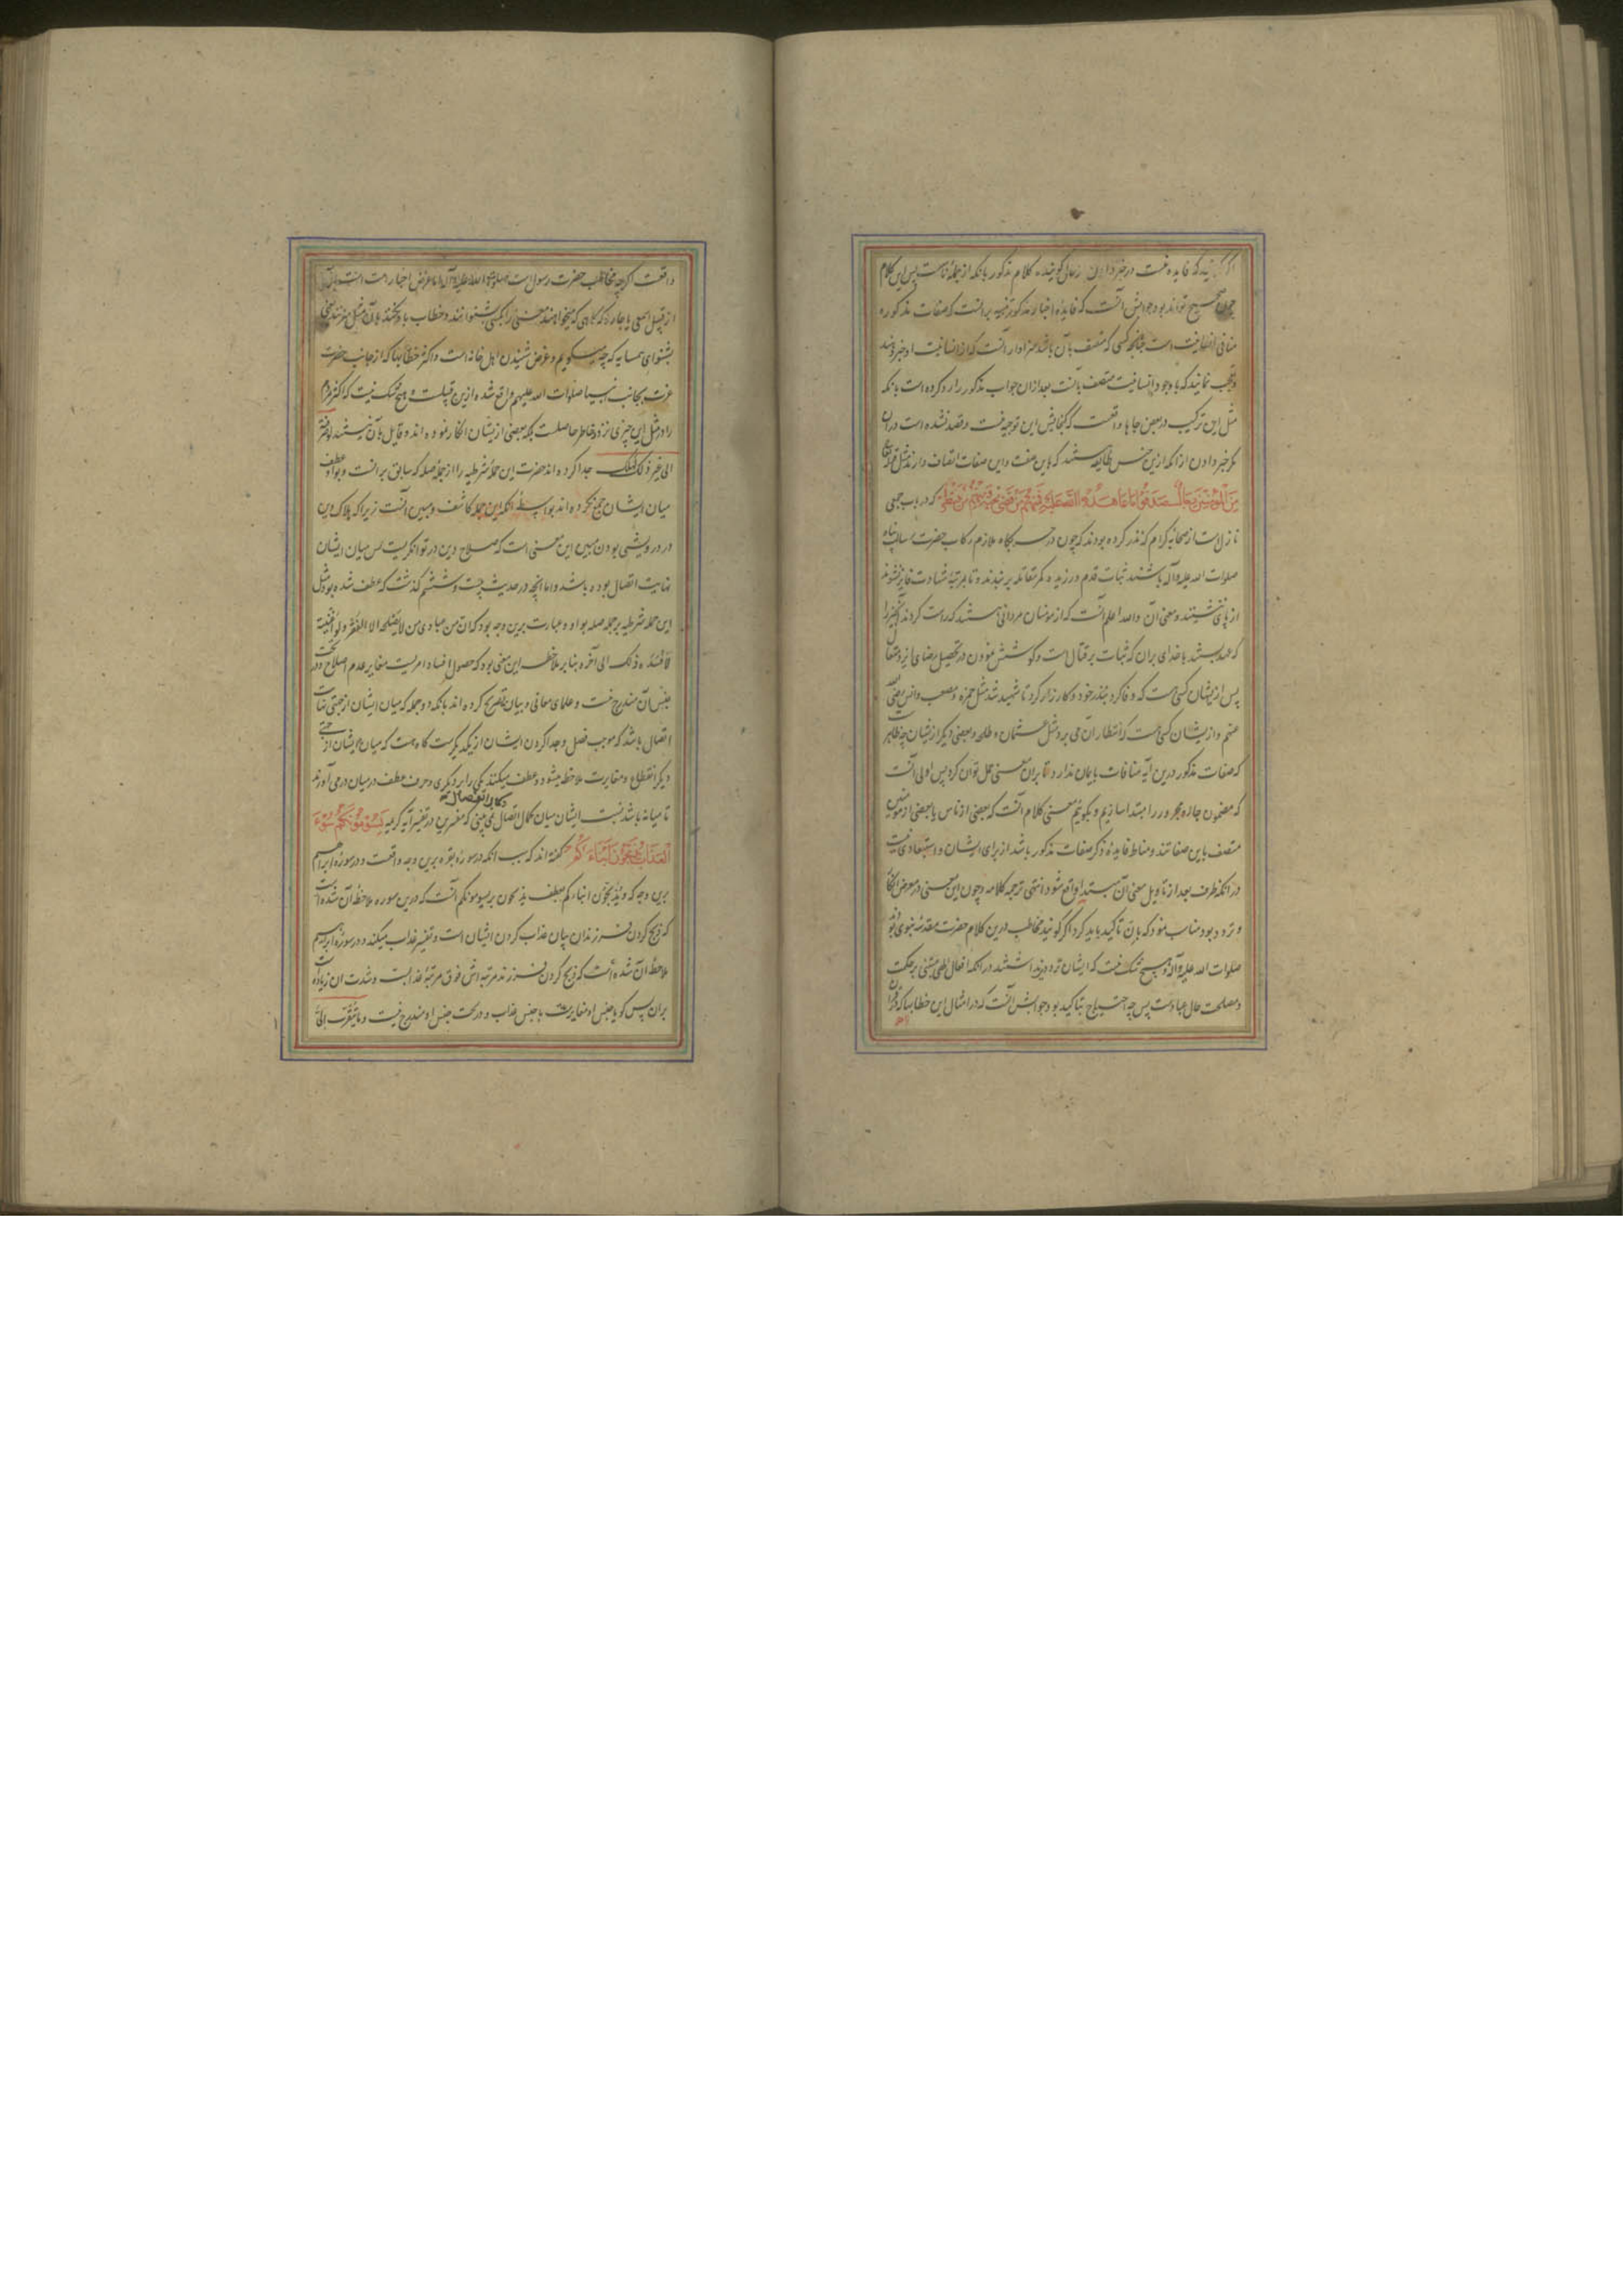 که فایده نیست در خبر دادن گوینده کلام مذکور بانکه از جمله ناست پس این کلام
چون صحیح تواند بود جوابش آنست که فایدهٔ اخبار مذکور تنبیه برانست که صفات مذکوره
منافی انسانیت است چنانچه کسی که متصف بآن باشد سزاوار آنست که از انسانیت او خبر دهند
و تعجب نمایند که با وجود انسانیت متصف بآنست بعد ازان جواب مذکور را رد کرده است بانکه
مثل این ترکیب در بعض جاها واقعست که گنجایش این توجیه نیست و قصد نشده است دران
مگر خبر دادن از انکه ازین جنس طایفه هستند که باین صفت و این صفات اتصاف دارند مثل قوله تعالی
مِنَ المُؤمِنینَ رِجالٌ صَدَقُوا ما عاهَدُوا اللّهَ عَلَیهِ فَمِنهُم مَن قَضی نَحبَهُ وَمِنهُم مَن یَنتَظِرُ که در باب جمعی
نازل است از صحابه کرام که نذر کرده بودند که چون در جنگگاه ملازم رکاب حضرت رسالت پناه
صلوات الله علیه وآله باشند ثبات قدم ورزیده کمر مقاتله بر بندند و تا بمرتبهٔ شهادت فایز نشوند
از پای ننشینند و معنی آن والله اعلم آنست که از مومنان مردانی هستند که راست کردند آنچیز را
که عهد بستند با خدای بران که ثبات بر قتال است و کوشش نمودن در تحصیل رضای ایزد متعال
پس از ایشان کسی هست که وفا کرد بنذر خود و کارزار کرد تا شهید شد مثل حمزه و مصعب وانس رضی
عنهم و از یشان کسی هست که انتظار آن می برد مثل عثمان و طلحه و بعضی دیگر از یشان چه ظاهر است
که صفات مذکور درین آیه منافات با ایمان ندارد تا بران معنی حمل توان کرد پس اولی آنست
که مضمون جار و مجرور را مبتدا سازیم و بگوییم معنی کلام آنست که بعضی از ناس یا بعضی از مومنین
متصف باین صفاتند و مناط فایده ذکر صفات مذکور باشد از برای ایشان و استبعادی نیست
در انکه ظرف بعد از تاویل معنی آن مبتدا واقع شود انتهی ترجمه کلامه و چون این معنی در معرض انکار
و تردد بود مناسب نمود که بانّ تاکید باید کرد اگر گویند مخاطب درین کلام حضرت مقدسه نبوی بود
صلوات الله علیه وآله و هیچ شک نیست که ایشان تردد نداشتند در انکه افعال الهی مبتنی بر حکمت
و مصلحت حال عباد است پس چه احتیاج بتاکید بود جوابش آنست که در امثال این خطابها که در قرآن
واقعست اگرچه مخاطب حضرت رسول است صلوات الله علیه وآله اما غرض اخبار امت است
از قبیل اسمعی یا جاره که گاهی که میخواهند سخنی را بکسی بشنوانند و خطاب باو نکنند بآن مثل میزنند یعنی
بشنو ای همسایه که چه میگویم و غرض شنیدن اهل خانه است و اکثر خطابها که از جانب حضرت
عزت بجانب انبیا صلوات الله علیهم واقع شده ازین قبیلست و هیچ شک نیست که اکثر مردم
را در مثل این چیزی تردد خاطر حاصلست بلکه بعضی از یشان انکار نموده اند و قایل بآن نیستند
الی غیر ذلک جدا کرده اند حضرت این جملهٔ شرطیه را از جملهٔ صله که سابق برانست و بواو عطف
میان ایشان جمع نکرده اند بواسطهٔ انکه این جمله کاشف و مبین آنست زیرا که هلاک دین
در درویشی بودن مبین این معنی است که صلاح دین در توانگریست پس میان ایشان
نهایت اتصال بوده باشد و اما انچه در حدیث بیست و ششم گذشت که عطف شده بود مثل
این جمله شرطیه بر جمله صله بواو و عبارت برین وجه بود که ان من عبادی من لا یصلحه الا الفقر و لو اغنیته
لافسده ذلک الی آخره بنا بر ملاحظه این معنی بود که حصول افساد امریست مغایر عدم اصلاح و در تحت
جنس آن مندرج نیست و علمای معانی و بیان تصریح کرده اند بانکه دو جمله که میان ایشان از جهتی نهایت
اتصال باشد که موجب فصل و جدا کردن ایشان از یکدیگرست گاه هست که میان ایشان از جهت
دیگر انقطاع و مغایرت ملاحظه میشود و عطف میکنند یکی را بر دیگری و حرف عطف در میان در می آورند
تا میانه باشد نسبت ایشان میان کمال اتصال و کمال انفصال نمی بینی که مفسرین در تفسیر آیه کریمه یَسُومُونَکُم سُوءَ
العَذابِ یُذَبِّحُونَ اَبناءَکُم گفته اند که سبب انکه در سوره بقره برین وجه واقعست و در سورهٔ ابراهیم
برین وجه که و یذبحون ابناءکم بعطف یذبحون بر یسومونکم آنست که درین سوره ملاحظهٔ آن شده است
که ذبح کردن فرزندان بیان عذاب کردن ایشان است و تفسیر عذاب میکند و در سورهٔ ابراهیم
ملاحظهٔ آن شده است که ذبح کردن فرزند مرتبه اش فوق مرتبهٔ عذابست و شدت ان زیادست
بران پس گویا جنس او مغایرست با جنس عذاب و در تحت جنس او مندرج نیست و ما یتقرب الیّ